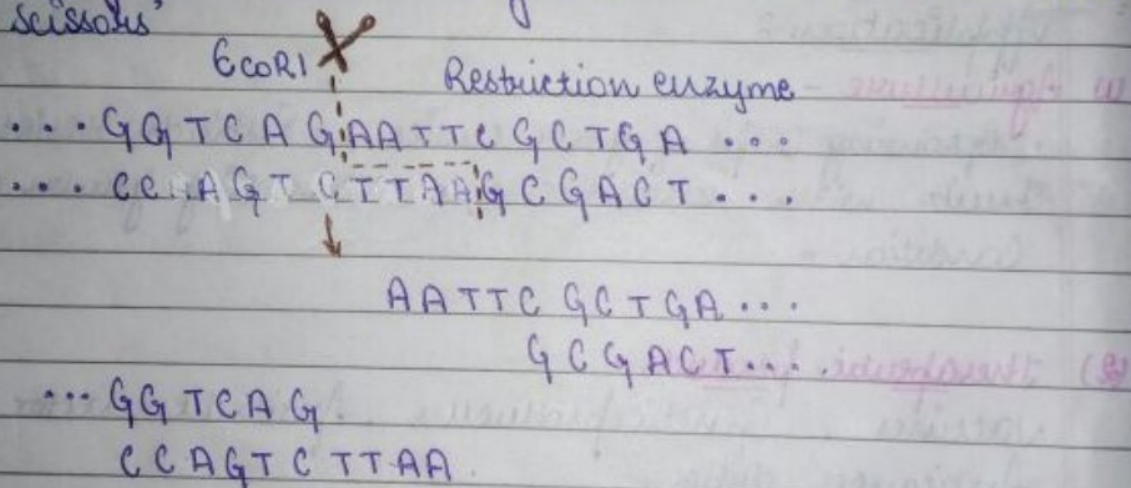 scissors'
EcoRI
Restriction enzyme
...GGTCAGAATTCGCTGA...
...CCAGTCTTAAGCGACT...
AATTCGCTGA...
GCGACT...
...GGTCAG
CCAGTCTTAA